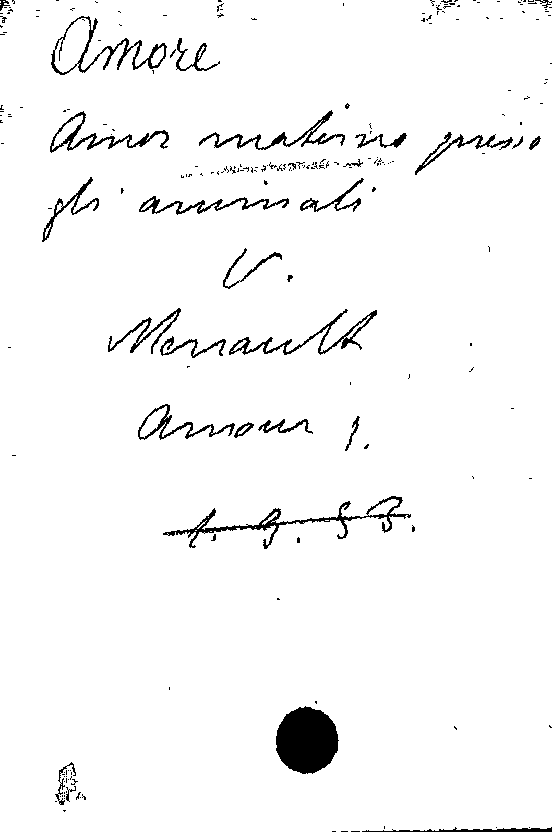 Amore
Amor materno presso
gli animali
V.
Menault
Amour